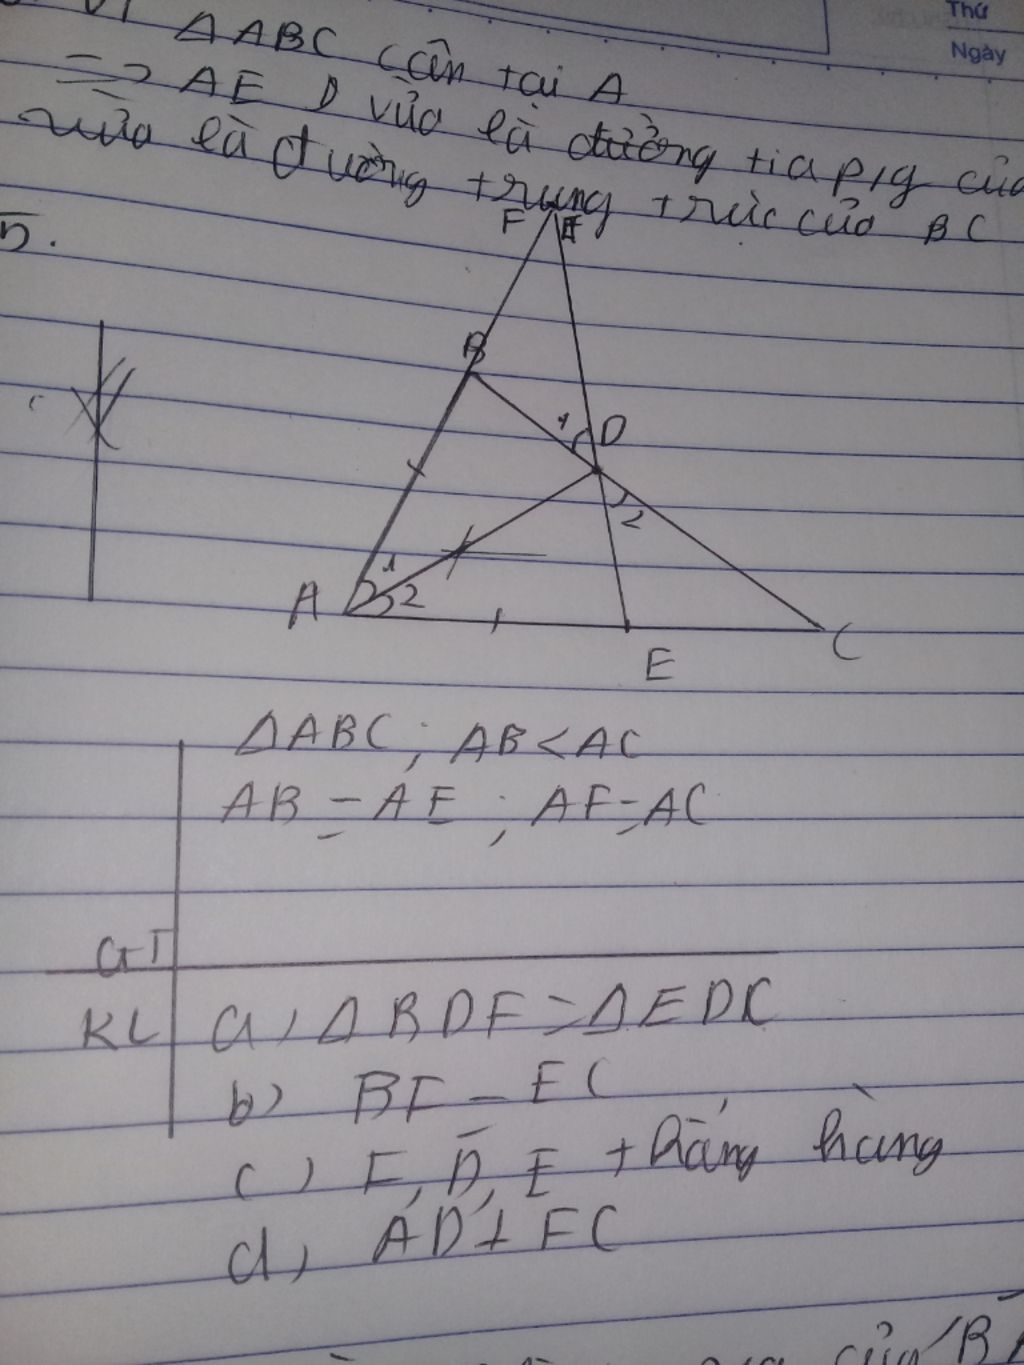 Thứ
Ngày
ΔABC cân tại A
=> AE D vừa là đường tia p/g của
vừa là đường trung trực của BC
5.
F
B
1 D
2
A 1 2
E
C
ΔABC; AB < AC
AB = AE; AF = AC
GT
KL a, ΔBDF = ΔEDC
b) BF = EC
c) F, D, E thẳng hàng
d, AD ⊥ FC
của